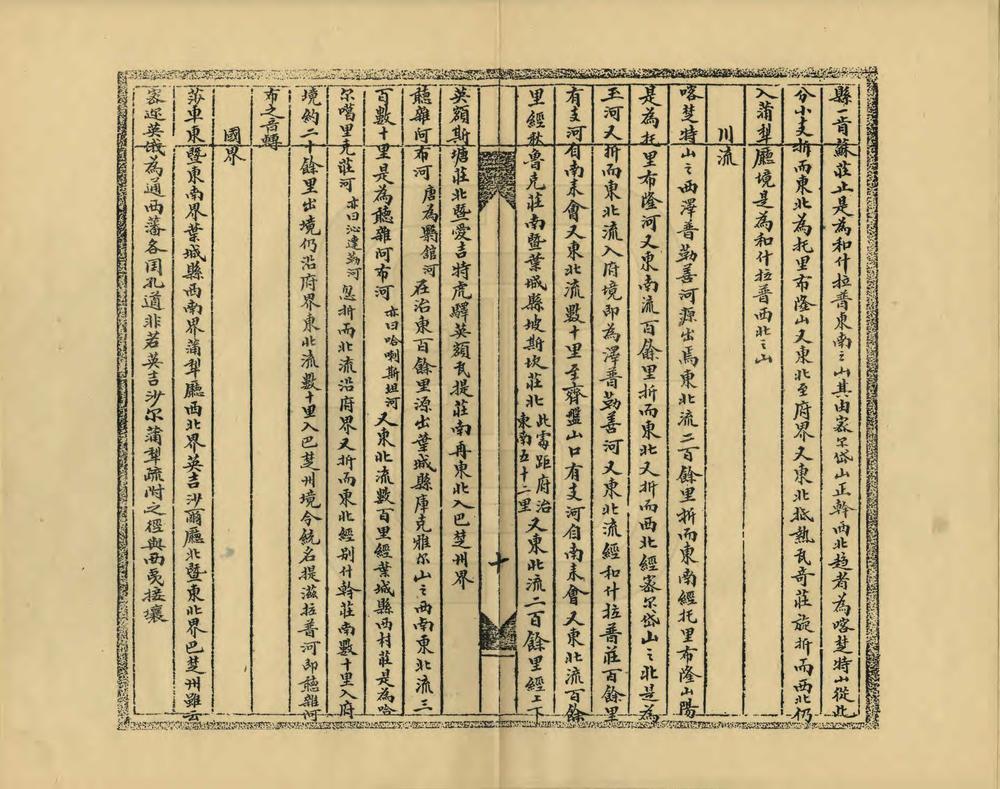 縣二音蘇莊止是為和什拉普東南之山其由密尔岱山正幹西北趨者為喀楚特山從此
分小支折而東北為托里布隆山又東北至府界又東北抵熱瓦奇莊旋折而西北仍
入蒲犁廳境是為和什拉普西北之山
川流
喀楚特山之西澤普勒善河源出焉東北流二百餘里折而東南經托里布隆山陽
是為托里布隆河又東南流百餘里折而東北又折而西北經密尔岱山之北是為
玉河又折而東北流入府境即為澤普勒善河又東北流經和什拉普莊百餘里
有支河自南来會又東北流數十里至齊盤山口有支河自南来會又東北流百餘
里經怂魯克莊南暨葉城縣坡斯坎莊北此處距府治東南五十二里又東北流二百餘里經上下
十
英額斯塘莊北暨愛吉特虎驛英額瓦提莊南再東北入巴楚州界
聽雜阿布河唐為羈舘河在治東百餘里源出葉城縣庫克雅尔山之西南東北流三
百數十里是為聽雜阿布河亦曰哈喇斯坦河又東北流數百里經葉城縣西村莊是為哈
尔噶里克莊河亦曰沁達勒河忽折而北流沿府界又折而東北經别什幹莊南數十里入府
境約二十餘里出境仍沿府界東北流數十里入巴楚州境今統名提滋拉普河即聽雜阿
布之音轉
國界
莎車東暨東南界葉城縣西南界蒲犁廳西北界英吉沙爾廳北暨東北界巴楚州雖云
密迩英俄為通西藩各国孔道非若英吉沙尔蒲犁疏附之徑與西戎接壤